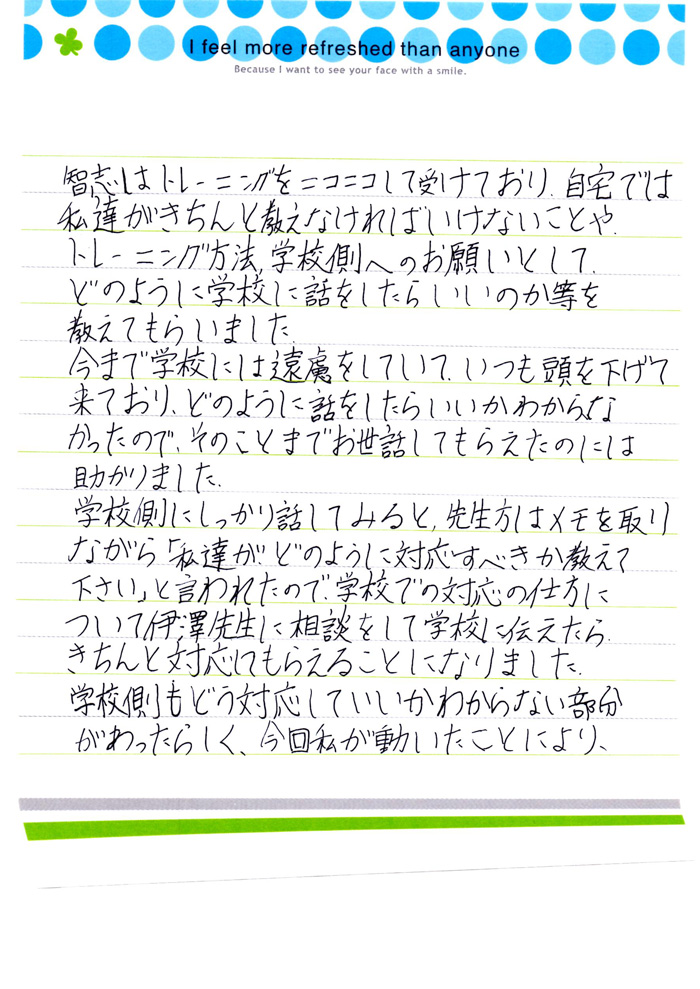 I feel more refreshed than anyone
Because I want to see your face with a smile.
智志はトレーニングをニコニコして受けており、自宅では
私達がきちんと教えなければいけないことや、
トレーニング方法、学校側へのお願いとして、
どのように学校に話をしたらいいのか等を
教えてもらいました。
今まで学校には遠慮をしていて、いつも頭を下げて
来ており、どのように話をしたらいいかわからな
かったので、そのことまでお世話してもらえたのには
助かりました。
学校側にしっかり話してみると、先生方はメモを取り
ながら「私達がどのように対応すべきか教えて
下さい」と言われたので、学校での対応の仕方に
ついて伊澤先生に相談をして学校に伝えたら、
きちんと対応してもらえることになりました。
学校側もどう対応していいかわからない部分
があったらしく、今回私が動いたことにより、